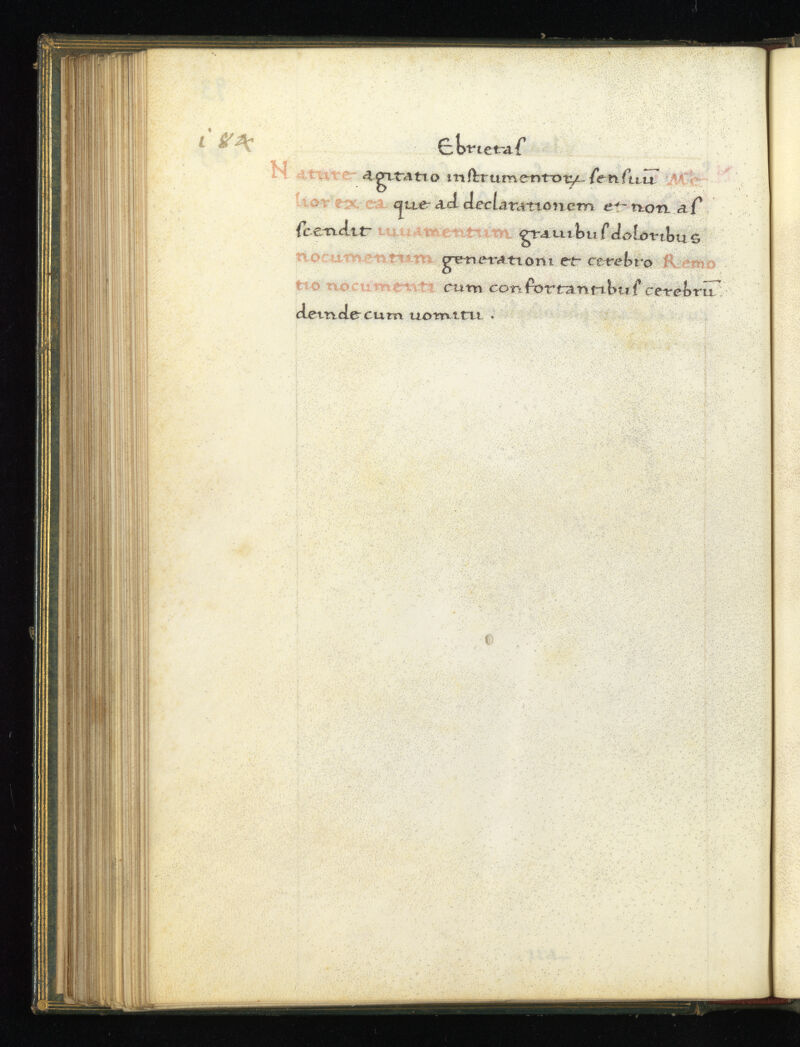 i84
Ebrietaſ
Nature agitatio inſtrumentoꝝ ſenſuū Me
lior ex ea que ad declarationem et non aſ
ſcendit iuuamentum grauibuſ doloribus
nocumentum generationi et cerebro Remo
tio nocumenti cum confortantibuſ cerebrū
deinde cum uomitu .